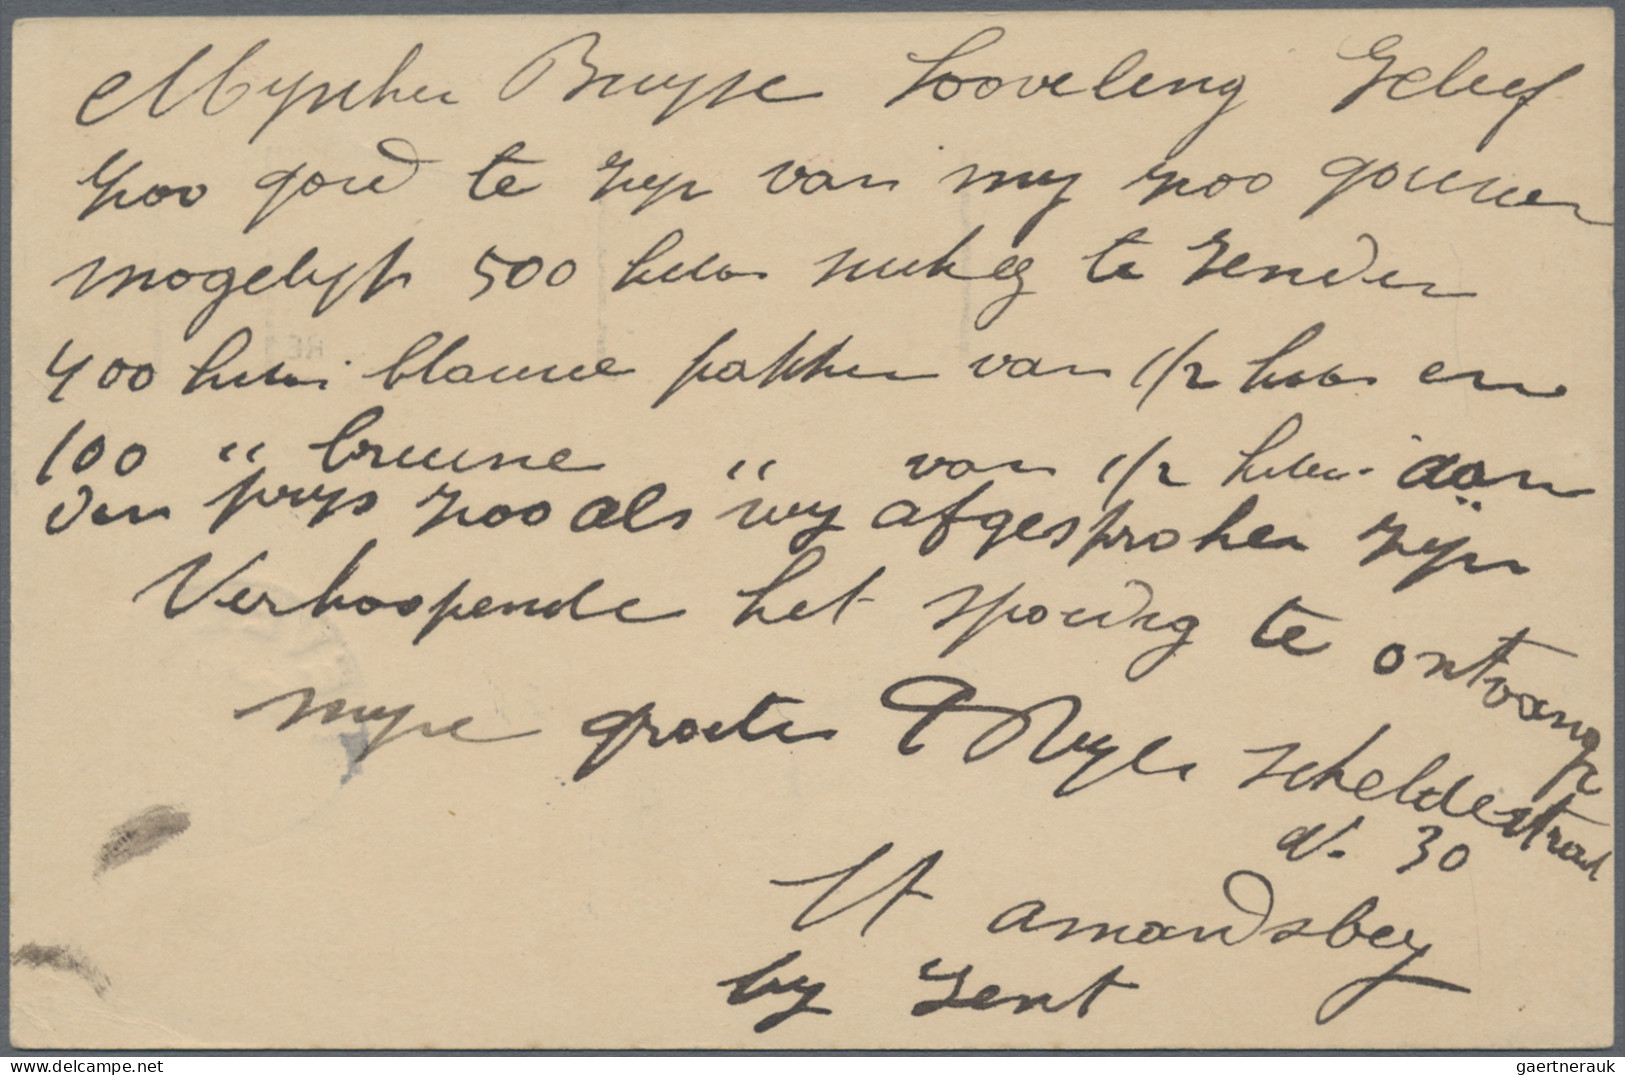 Mynheer Buysse Looveling Gelief
zoo goed te zyn van my zoo gauuw
mogelyk 500 kilos suikeg te zenden
400 kilos blauwe pakken van 1/2 kilos en
100 " bruine " van 1/2 kilos aan
den prys zooals wy afgesproken zyn
Verhoopende het spoedig te ontvangen
myne groeten
scheldestraat
N. 30
St amandsberg
by Gent
gaertnerauk